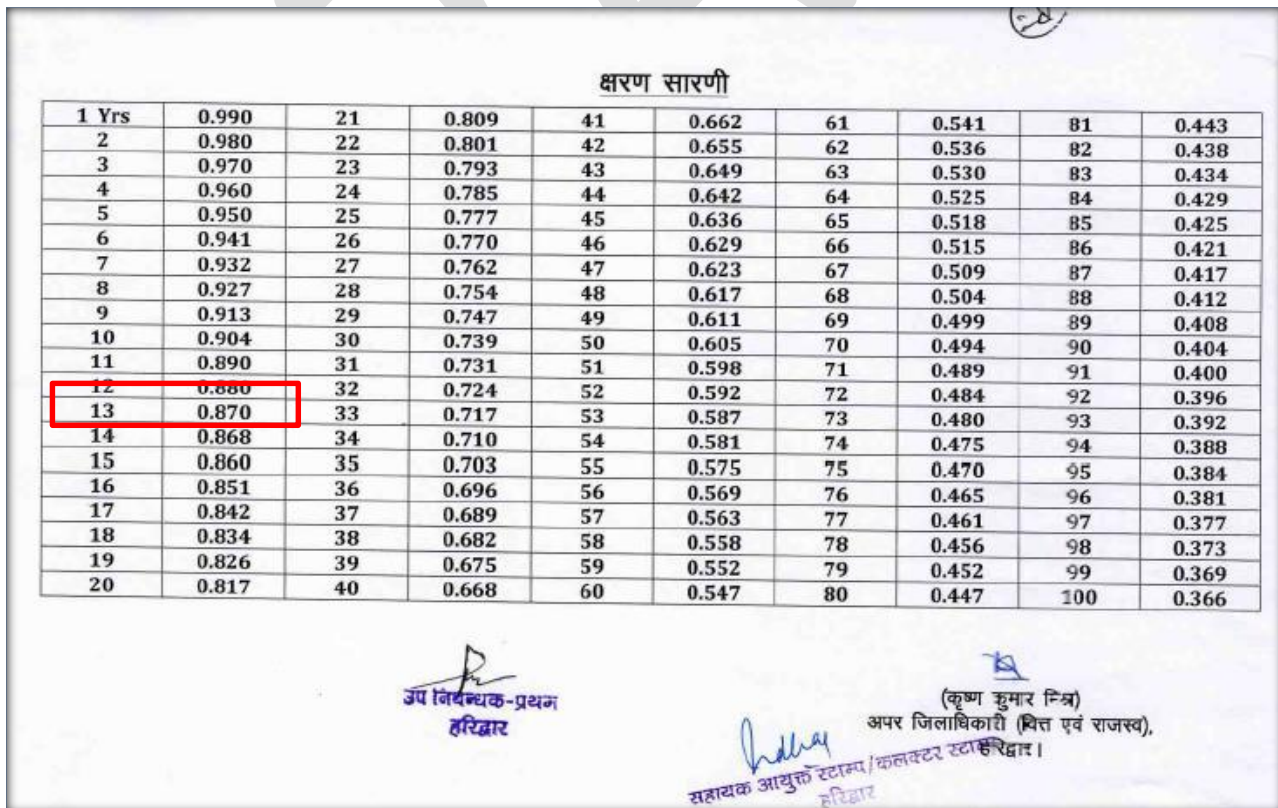 क्षरण सारणी
1 Yrs 0.990 21 0.809 41 0.662 61 0.541 81 0.443
2 0.980 22 0.801 42 0.655 62 0.536 82 0.438
3 0.970 23 0.793 43 0.649 63 0.530 83 0.434
4 0.960 24 0.785 44 0.642 64 0.525 84 0.429
5 0.950 25 0.777 45 0.636 65 0.518 85 0.425
6 0.941 26 0.770 46 0.629 66 0.515 86 0.421
7 0.932 27 0.762 47 0.623 67 0.509 87 0.417
8 0.927 28 0.754 48 0.617 68 0.504 88 0.412
9 0.913 29 0.747 49 0.611 69 0.499 89 0.408
10 0.904 30 0.739 50 0.605 70 0.494 90 0.404
11 0.890 31 0.731 51 0.598 71 0.489 91 0.400
12 0.880 32 0.724 52 0.592 72 0.484 92 0.396
13 0.870 33 0.717 53 0.587 73 0.480 93 0.392
14 0.868 34 0.710 54 0.581 74 0.475 94 0.388
15 0.860 35 0.703 55 0.575 75 0.470 95 0.384
16 0.851 36 0.696 56 0.569 76 0.465 96 0.381
17 0.842 37 0.689 57 0.563 77 0.461 97 0.377
18 0.834 38 0.682 58 0.558 78 0.456 98 0.373
19 0.826 39 0.675 59 0.552 79 0.452 99 0.369
20 0.817 40 0.668 60 0.547 80 0.447 100 0.366
उप निबन्धक-प्रथम
हरिद्वार
(कृष्ण कुमार मिश्र)
अपर जिलाधिकारी (वित्त एवं राजस्व),
हरिद्वार।
सहायक आयुक्त स्टाम्प/कलक्टर स्टाम्प
हरिद्वार